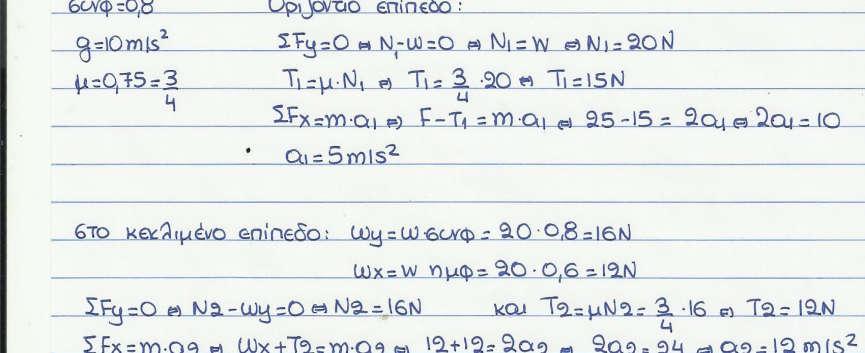 συνφ=0,8 Οριζόντιο επίπεδο:
g=10m/s² ΣFy=0 ⇔ N₁-W=0 ⇔ N₁=W ⇔ N₁=20N
μ=0,75=3/4 T₁=μ·N₁ ⇔ T₁=3/4·20 ⇔ T₁=15N
ΣFx=m·a₁ ⇔ F-T₁=m·a₁ ⇔ 25-15=2a₁ ⇔ 2a₁=10
a₁=5m/s²
στο κεκλιμένο επίπεδο: wy=w·συνφ=20·0,8=16N
wx=w ημφ=20·0,6=12N
ΣFy=0 ⇔ N2-wy=0 ⇔ N2=16N και T2=μN2=3/4·16 ⇔ T2=12N
ΣFx=m·a2 ⇔ Wx+T2=m·a2 ⇔ 12+12=2a2 ⇔ 2a2=24 ⇔ a2=12m/s²